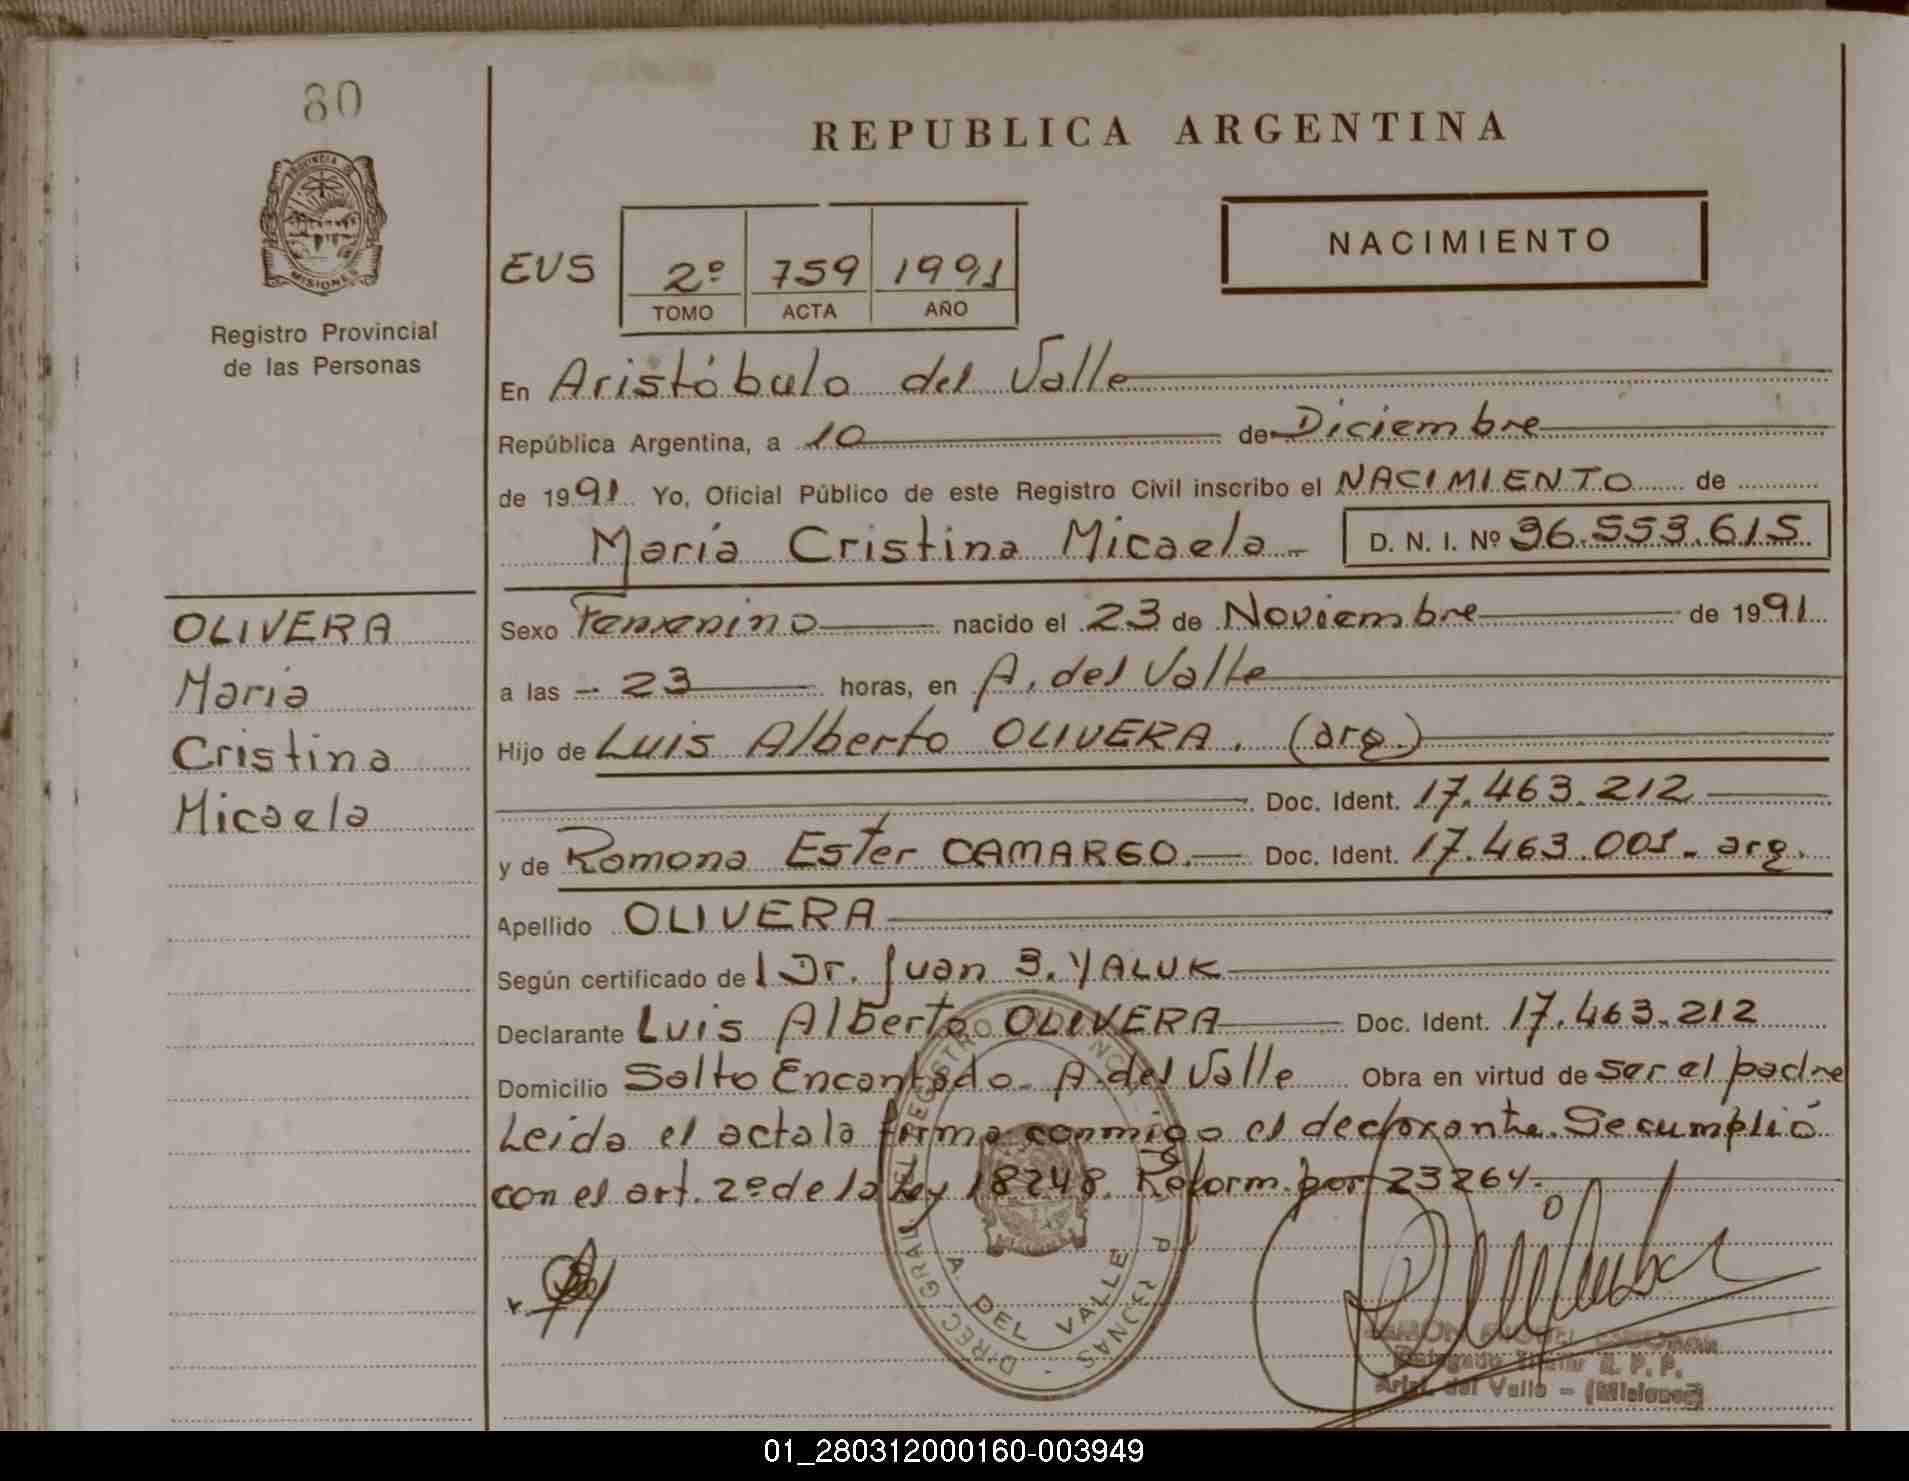 80
PROVINCIA DE
MISIONES
Registro Provincial
de las Personas
OLIVERA
Maria
Cristina
Micaela
REPUBLICA ARGENTINA
NACIMIENTO
EUS 2º 759 1991
TOMO ACTA AÑO
En Aristóbulo del Valle
República Argentina, a 10 de Diciembre
de 1991 Yo, Oficial Público de este Registro Civil inscribo el NACIMIENTO de
María Cristina Micaela - D. N. I. Nº 36.553.615
Sexo Femenino nacido el 23 de Noviembre de 1991
a las - 23 horas, en A. del Valle
Hijo de Luis Alberto OLIVERA. (arg.)
Doc. Ident. 17.463.212
y de Ramona Ester CAMARGO.- Doc. Ident. 17.463.001- arg.
Apellido OLIVERA
Según certificado de l Dr. Juan B. YALUK
Declarante Luis Alberto OLIVERA Doc. Ident. 17.463.212
Domicilio Salto Encantado- A. del Valle Obra en virtud de ser el padre
Leida el acta la firma conmigo el declarante. Se cumplió
con el art. 2º de la Ley 18248. Reform. por 23264.-
DIREC. GRAL. DEL REGISTRO PROVINCIAL P PERSONAS
A. DEL VALLE
Delegado Titular R. P. P.
Arist. del Valle - (Misiones)
01_280312000160-003949